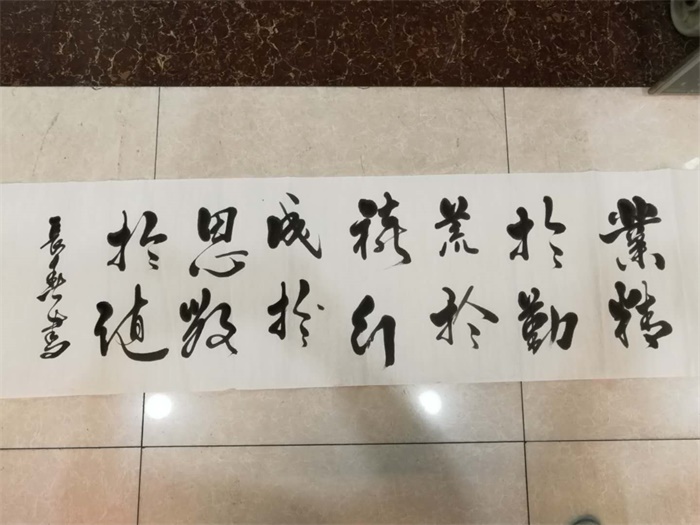 業精
於勤
荒於
嬉行
成於
思毀
於随
長書